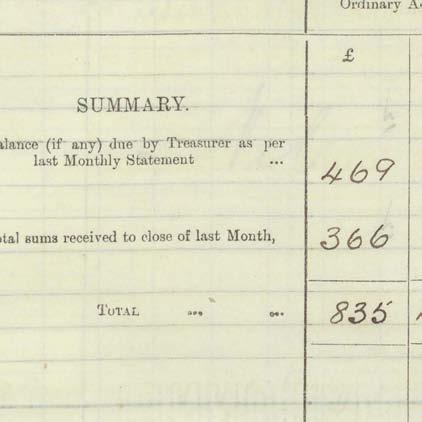 Ordinary
£
SUMMARY.
alance (if any) due by Treasurer as per
last Monthly Statement ... 469
otal sums received to close of last Month, 366
TOTAL ... ... 835